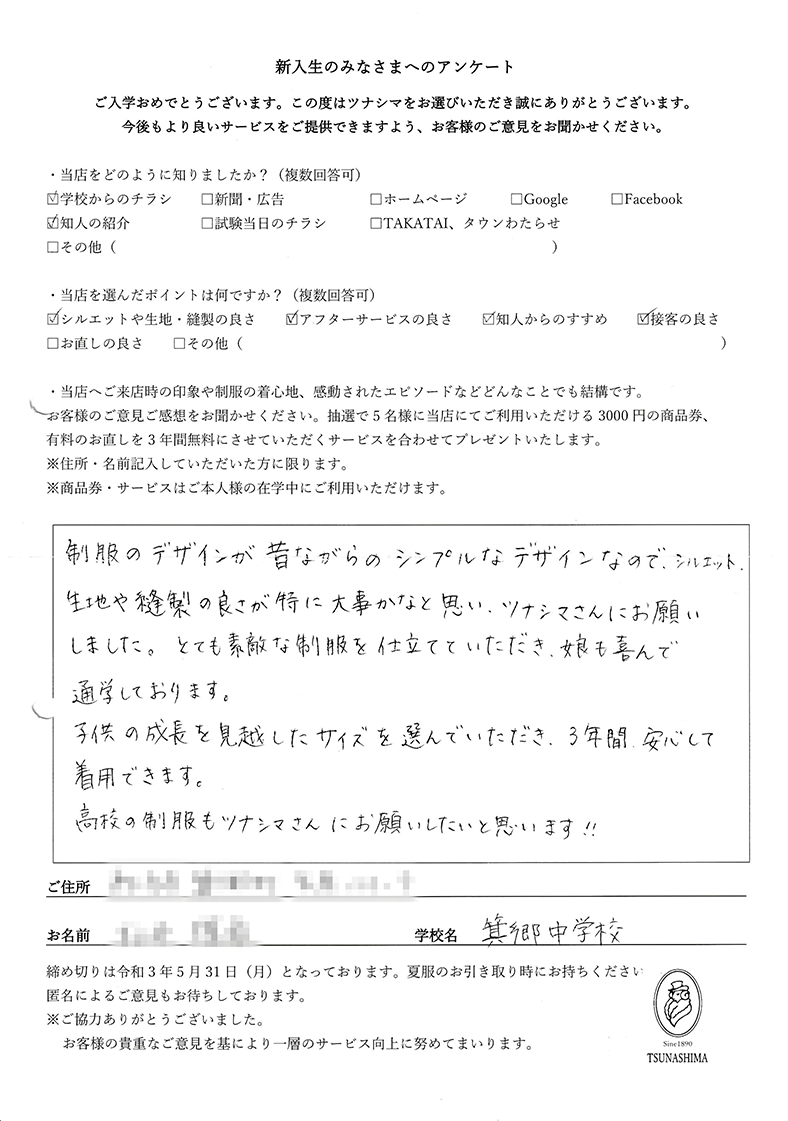 新入生のみなさまへのアンケート
ご入学おめでとうございます。この度はツナシマをお選びいただき誠にありがとうございます。
今後もより良いサービスをご提供できますよう、お客様のご意見をお聞かせください。
・当店をどのように知りましたか？（複数回答可）
☑学校からのチラシ ☐新聞・広告 ☐ホームページ ☐Google ☐Facebook
☑知人の紹介 ☐試験当日のチラシ ☐TAKATAI、タウンわたらせ
☐その他（ ）
・当店を選んだポイントは何ですか？（複数回答可）
☑シルエットや生地・縫製の良さ ☑アフターサービスの良さ ☑知人からのすすめ ☑接客の良さ
☐お直しの良さ ☐その他（ ）
・当店へご来店時の印象や制服の着心地、感動されたエピソードなどどんなことでも結構です。
お客様のご意見ご感想をお聞かせください。抽選で5名様に当店にてご利用いただける3000円の商品券、
有料のお直しを3年間無料にさせていただくサービスを合わせてプレゼントいたします。
※住所・名前記入していただいた方に限ります。
※商品券・サービスはご本人様の在学中にご利用いただけます。
制服のデザインが昔ながらのシンプルなデザインなので、シルエット、
生地や縫製の良さが特に大事かなと思い、ツナシマさんにお願い
しました。とても素敵な制服を仕立てていただき、娘も喜んで
通学しております。
子供の成長を見越したサイズを選んでいただき、3年間、安心して
着用できます。
高校の制服もツナシマさんにお願いしたいと思います!!
ご住所
お名前 学校名 箕郷中学校
締め切りは令和3年5月31日（月）となっております。夏服のお引き取り時にお持ちください
匿名によるご意見もお待ちしております。
※ご協力ありがとうございました。
お客様の貴重なご意見を基により一層のサービス向上に努めてまいります。
Sine1890
TSUNASHIMA